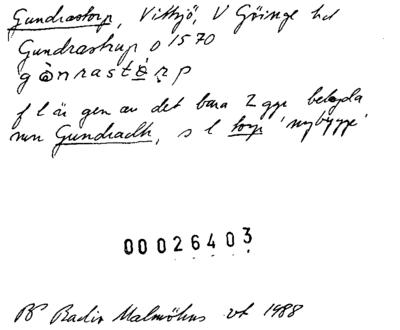 Gundrastorp, Vittsjö, V Göinge hd
Gundrastrup o 1570
gònrastɔ́rp
f l är gen av det bara 2 ggr belagda
mn Gundradh, s l torp 'nybygge'
00026403
BP Radio Malmöhus vt 1988